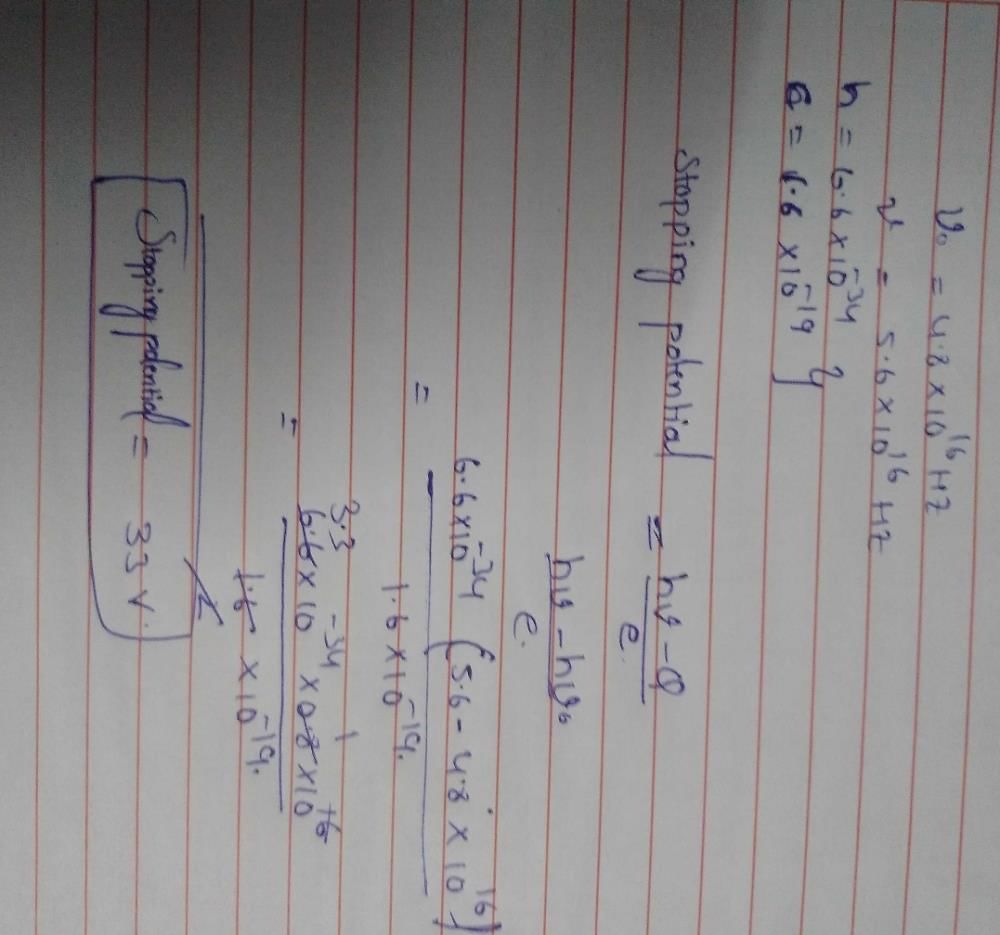 ν₀ = 4.8 × 10¹⁶ HZ
ν = 5.6 × 10¹⁶ HZ
h = 6.6 × 10⁻³⁴
e = 1.6 × 10⁻¹⁹ }
Stopping potential = hν - Φ / e.
hν - hν₀ / e.
= 6.6×10⁻³⁴ (5.6 - 4.8 × 10¹⁶) / 1.6 × 10⁻¹⁹.
= 3.3 6.6 × 10⁻³⁴ × 0.8 1 × 10¹⁶ / 1.6 × 10⁻¹⁹.
Stopping potential = 33 V.